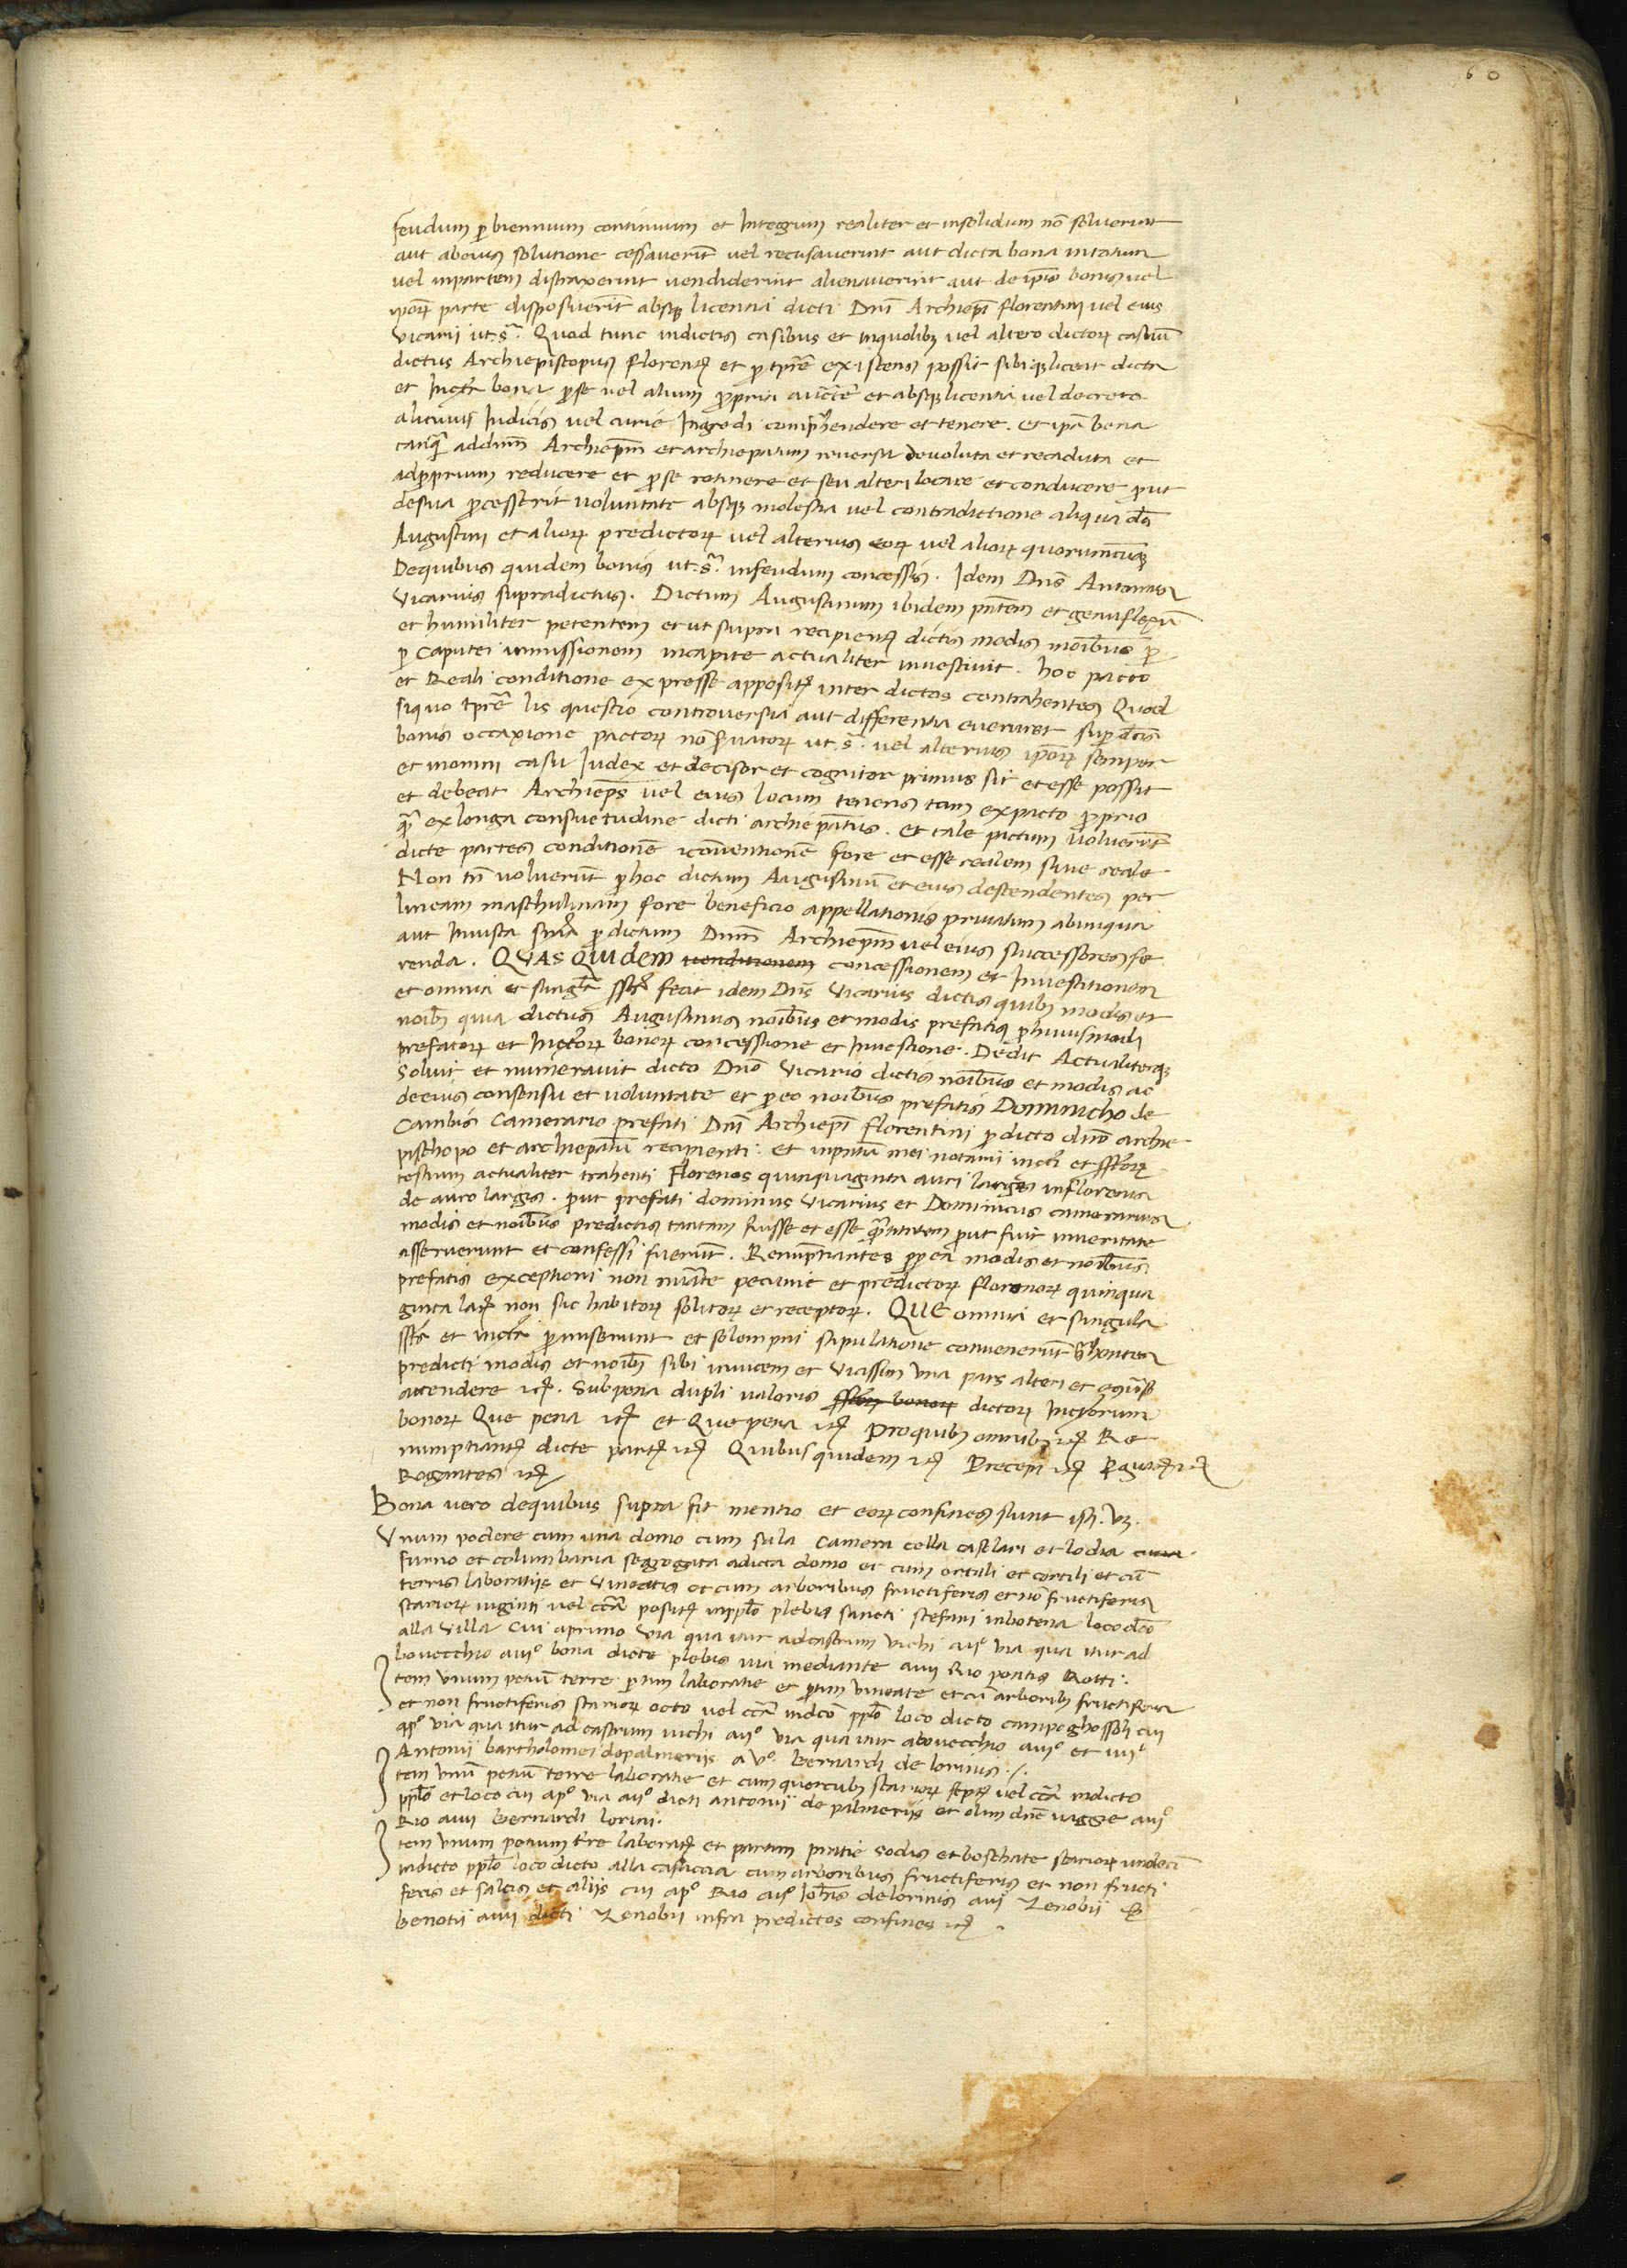 60
feudum p biennium continuum et Integrum realiter et insolidum nō solverint
aut abeius solutione cessaverīt vel recusaverint aut dicta bona intotum
vel inpartem distraxerint vendiderint alienaverint aut de ipsis bonis vel
ipsorꝝ parte disposuerīt absqꝫ licentia dicti Dnī Archiepī florentini vel eius
vicarii ut.sª. Quod tunc indictis casibus et inquolibꝫ vel altero dictorꝝ casuū
dictus Archiepiscopus florentꝰ et p tpre existens possit sibiqꝫ liceat dicta
et Infrta bona p se vel alium propria auctte et absqꝫ licentia vel decreto
alicuius Iudicis vel curie Ingredi comprhendere et tenere. et ipa bona
tanqª addnm̄ Archiepm̄ et archiepatum reversa devoluta et recaduta et
adproprium reducere et p se retinere et seu alteri locare et conducere prout
desua processerit voluntate absqꝫ molestia vel contradictione aliqua dci
Augustini et aliorꝝ predictorꝝ vel alterius eorꝝ vel aliorꝝ quorumcūqꝫ
Dequibus quidem bonis ut.sª. infeudum concessis. Idem Dns̄ Antonius
Vicarius supradictus. Dictum Augustinum ibidem pntem et genuflexū
et humiliter petentem et ut supra recipientꝫ dictis modis noībus p
p caputei inmissionem incapite actualiter investivit. hoc pacto
et Reali conditione expresse appositꝫ inter dictos contrahentes Quod
siquo tpre lis questio controversia aut differentia eveniret sup dctis
bonis occaxione pactorꝝ nō svatorꝝ ut.sª. vel alterius ipsorꝝ semper
et inomni casu Iudex et decisor et cognitor primus sit et esse possit
et debeat Archieps̄ vel eius locum tenens tam expacto proprio
qª exlonga consuetudine dicti archiepatus. et tale pactum voluerūt
dicte partes conditionē 1conventionē fore et esse realem sive reale
Non tn̄ voluerūt phoc dictum Augustinū et eius descendentes per
lineam maschulinam fore beneficio appellationis privatum abiniqua
aut Iniusta snia p dictum Dnm̄ Archiepm̄ vel eius successores fe
renda. QUAS QUIdem venditionem concessionem et Investitionem
et omnia et singla sstā fecit idem Dns̄ Vicarius dictis quibꝫ modis et
noībꝫ quia dictus Augustinus noībus et modis prefatis phuiusmodi
prefatorꝝ et Infrtorꝝ bonorꝝ concessione et Investione. Dedit Actualiterqꝫ
solvit et numeravit dicto Dno Vicario dictis noībus et modis ac
deeius consensu et voluntate et p eo noībus prefatis Dominicho de
Cambis Camerario prefati Dnī Archiepī Florentini p dicto dno archie
pischopo et archiepatu recipienti. et inpntia mei notarii infrti et sstorꝝ
testium actualiter trahenti Florenos quinquaginta auri largos inflorenis
de auro largis. prout prefati dominus vicarius et Dominicus camerarius
modis et noībus predictis tantam fuisse et esse qªtitatem prout fuit inveritate
asseruerunt et confessi fuerūt. Renuptiantes ppea modis et noībus
prefatis exceptioni non nūate pecunie et predictorꝝ florenorꝝ quinqua
ginta larꝫ non sic habitorꝝ solutorꝝ et receptorꝝ. QUE omnia et singula
sstā et Infrta promiserunt et solempni stipulatione convenerūt ghentes
predicti modis et noībꝫ sibi invicem et vicissim una pars alteri et
attendere etꝫ. Subpena dupli valoris sstorꝝ bonorꝝ dictorꝝ Infrtorum
bonorꝝ Que pena etꝫ et Que pena etꝫ Proquibꝫ omnibꝫ etꝫ Re
numptiantꝫ dicte partꝫ etꝫ Quibus quidem etꝫ Precepi etꝫ etꝫ
Rogantes etꝫ
Bona vero dequibus supra fit mentio et eorꝝ confines sunt ista. vꝫ.
Unum podere cum una domo cum sala camera cella castellari et lodia cum
furno et columbaria segregata adicta domo et cum ortali et cortili et cū
terris laboratiis et vineatis et cum arboribus fructiferis et nō fructiferis
stariorꝝ viginti vel cca positꝫ inpplo plebis sancti stefani inbotena loco dco
alla villa cui aprimo via qua itur adcastrum vichi aijº via qua itur ad
bovecchio aiijº bona dicte plebis via mediante aiiij Rio pontis Rotti.
Item unum petiū terre partim laboratie et ptim vineate et cū arboribꝫ fructiferis
et non fructiferis stariorꝝ octo vel cca indco pplo loco dicto campoghossoli cui
apº via qua itur ad castrum vichi aijº via qua itur abovecchio aiijº et iiijº
Antonii bartholomei depalmeriis a vº. Bernardi de lorinis ./.
Item unū petiū terre laboratie et cum quercubꝫ stariorꝝ septꝫ vel cca indicto
pplo et loco cui apº via aijº dicti antonii de palmeriis et olim dne vaggie aiijº
Rio aiiij Bernardi lorini.
Item unum petium tre laboratꝫ et partim pratie sodis et boschate stariorꝝ undeci
indicto pplo loco dicto alla casuccia cum arboribus fructiferis et non fructi
feris et salcis et aliis cui apº Rio aijº Iohis delorinis aiijº Zenobii
benotii aiiij dicti Zenobii infra predictos confines etꝫ .